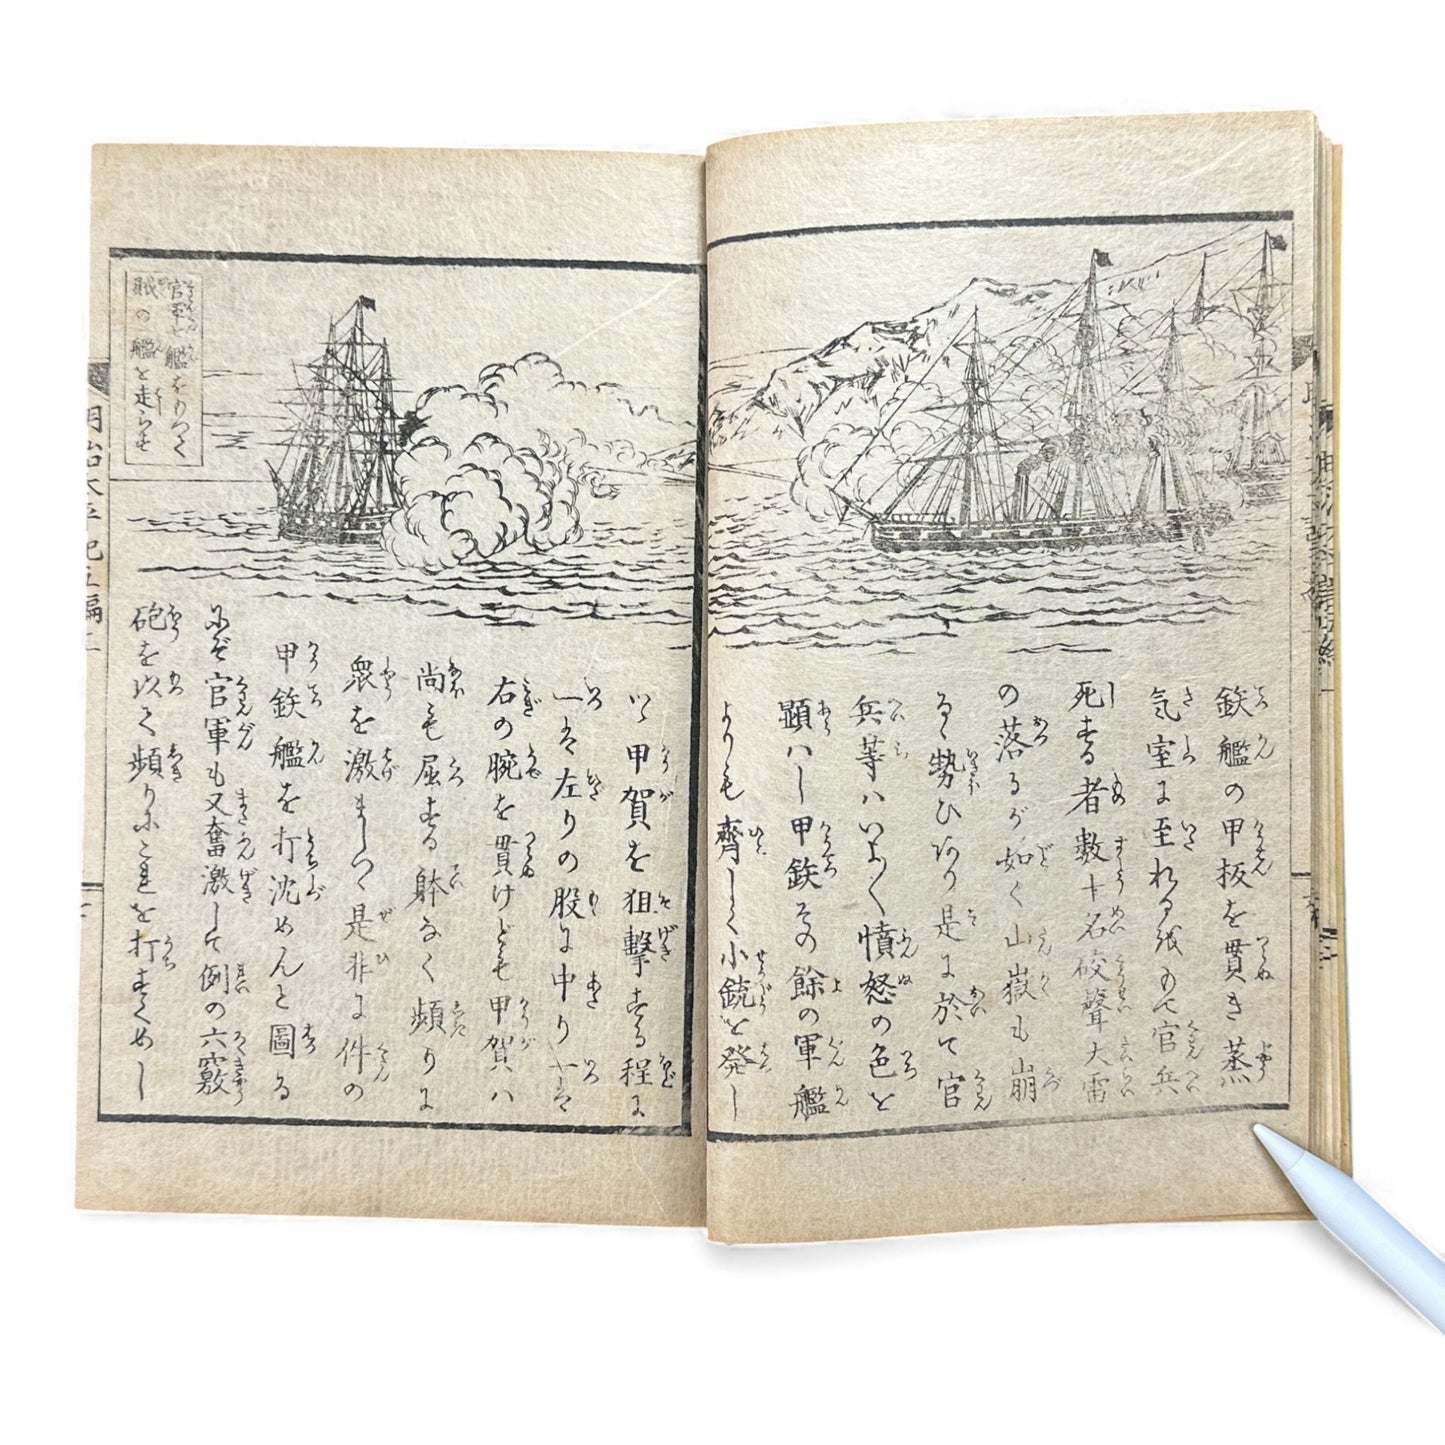 鉄艦の甲板を貫き蒸
気室に至れる故もて官兵
死する者数十名砲声大雷
の落るが如く山嶽も崩
るゝ勢ひあり是に於て官
兵等ハいよ〳〵憤怒の色を
顕ハし甲鉄その餘の軍艦
よりも齊しく小銃を発し
いゝ甲賀を狙撃する程に
一は左りの股に中り一は
右の腕を貫けども甲賀ハ
尚も屈する躰なく頻りに
衆を激ましつゝ是非に件の
甲鉄艦を打沈めんと圖る
にぞ官軍も又奮激して例の六竅
砲を以て頻りにこれを打すくめし
官軍一艦をもつて
賊の一艦を走らせ
明治太平記五編二